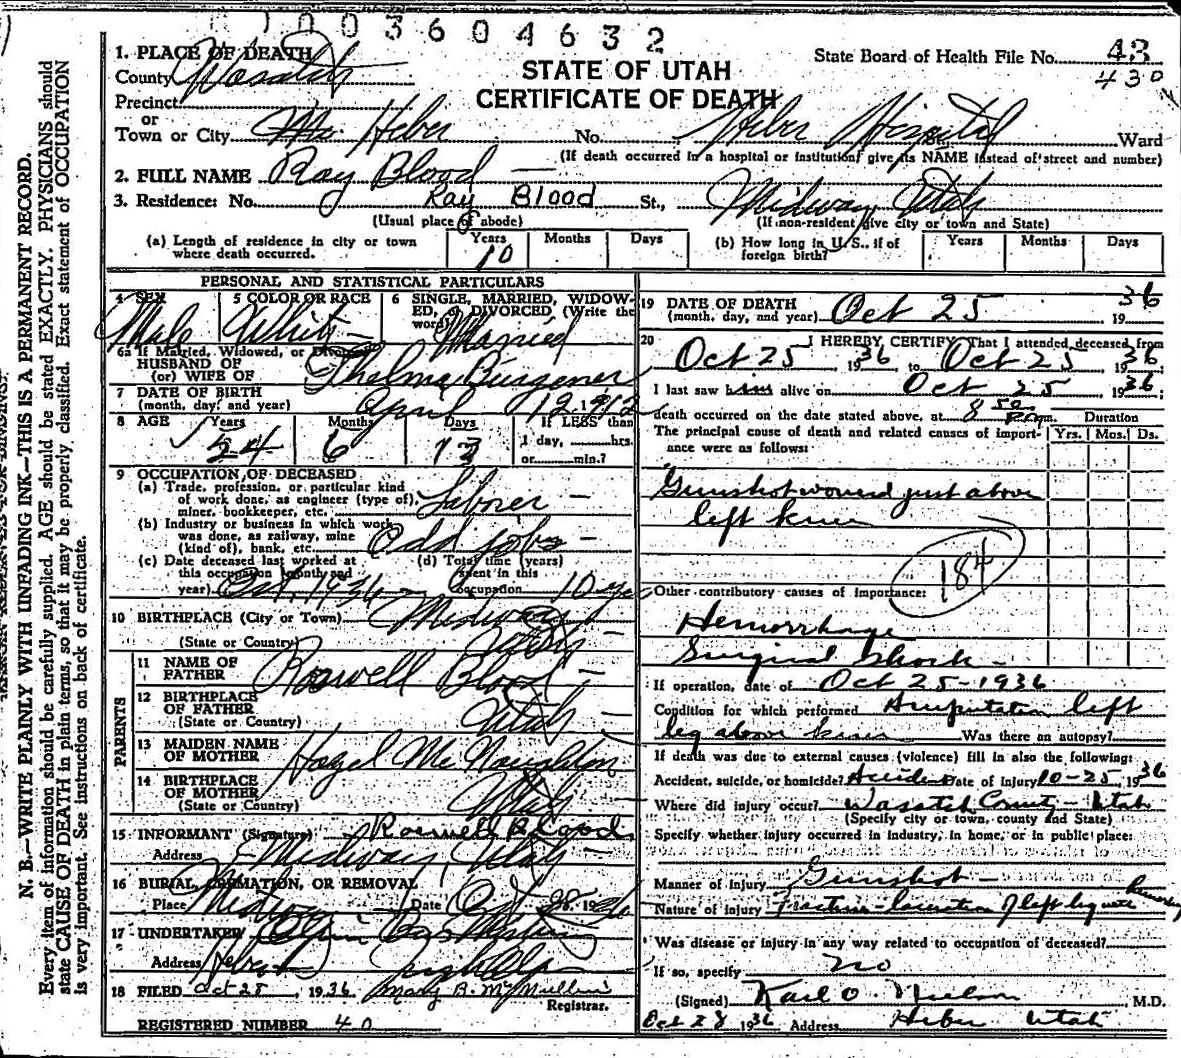 1003604632
1. PLACE OF DEATH
County Wasatch
State Board of Health File No. 43
430
STATE OF UTAH
CERTIFICATE OF DEATH
Precinct
or
Town or City Heber No. Heber Hospital St., Ward
(If death occurred in a hospital or institution, give its NAME instead of street and number)
2. FULL NAME Ray Blood
3. Residence: No. Ray Blood St., Midway, Utah
(Usual place of abode) (If non-resident give city or town and State)
(a) Length of residence in city or town where death occurred. Years 10 Months Days
(b) How long in U. S., if of foreign birth? Years Months Days
PERSONAL AND STATISTICAL PARTICULARS
4 SEX Male
5 COLOR OR RACE White
6 SINGLE, MARRIED, WIDOWED, or DIVORCED (Write the word) Married
6a If Married, Widowed, or Divorced
HUSBAND OF
(or) WIFE OF Thelma Burgener
7 DATE OF BIRTH
(month, day, and year) April 12, 1912
8 AGE Years 24 Months 6 Days 13 If LESS than 1 day, hrs. or min.?
9 OCCUPATION OF DECEASED
(a) Trade, profession, or particular kind of work done, as engineer (type of), miner, bookkeeper, etc. Laborer
(b) Industry or business in which work was done, as railway, mine (kind of), bank, etc. Odd jobs
(c) Date deceased last worked at this occupation (month and year) Oct. 1936
(d) Total time (years) spent in this occupation 10 yrs
10 BIRTHPLACE (City or Town) Midway
(State or Country) Utah
PARENTS
11 NAME OF FATHER Roswell Blood
12 BIRTHPLACE OF FATHER
(State or Country) Utah
13 MAIDEN NAME OF MOTHER Hazel McNaughton
14 BIRTHPLACE OF MOTHER
(State or Country) Utah
15 INFORMANT (Signature) Roswell Blood
Address Midway, Utah
16 BURIAL, CREMATION, OR REMOVAL
Place Midway Date Oct 28, 1936
17 UNDERTAKER
Address Heber
18 FILED Oct 28, 1936 Mary B. McMullin
Registrar.
REGISTERED NUMBER 40
19 DATE OF DEATH
(month, day, and year) Oct 25 1936
20 I HEREBY CERTIFY That I attended deceased from
Oct 25 1936 to Oct 25 1936
I last saw him alive on Oct 25 1936;
death occurred on the date stated above, at 8 50 P.m. Duration
The principal cause of death and related causes of importance were as follows: Yrs. Mos. Ds.
Gunshot wound just above
left knee
184
Other contributory causes of importance:
Hemorrhage
Surgical Shock
If operation, date of Oct 25-1936
Condition for which performed Amputation left
leg above knee Was there an autopsy?
If death was due to external causes (violence) fill in also the following:
Accident, suicide, or homicide? Accident Date of injury 10-25, 1936
Where did injury occur? Wasatch County - Utah
(Specify city or town, county and State)
Specify whether injury occurred in industry, in home, or in public place:
Manner of Injury Gunshot
Nature of injury Fracture - laceration of left leg with
Was disease or injury in any way related to occupation of deceased?
If so, specify no
(Signed) Karl O. Nielson M.D.
Oct 28 1936 Address Heber Utah
N. B.—WRITE PLAINLY WITH UNFADING INK—THIS IS A PERMANENT RECORD.
Every item of information should be carefully supplied. AGE should be stated EXACTLY. PHYSICIANS should
state CAUSE OF DEATH in plain terms, so that it may be properly classified. Exact statement of OCCUPATION
is very important. See instructions on back of certificate.